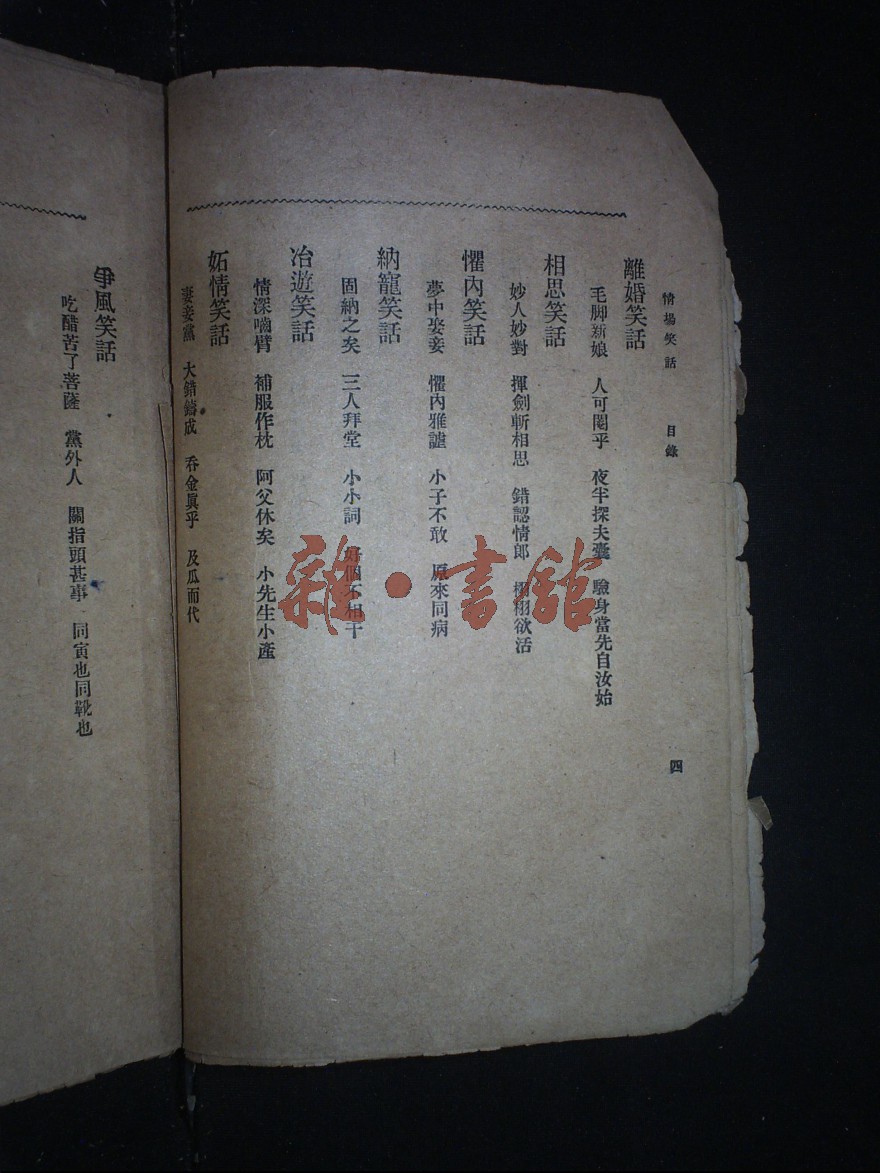 情場笑話　目錄　四
離婚笑話
毛脚新娘　人可閹乎　夜半探夫臺　驗身當先自汝始
相思笑話
妙人妙對　揮劍斬相思　錯認情郎　栩栩欲活
懼內笑話
夢中娶妾　懼內雅謔　小子不敢　原來同病
納寵笑話
固納之矣　三人拜堂　小小詞　好個不相干
冶遊笑話
情深嚙臂　補服作枕　阿父休矣　小先生小產
妬情笑話
妻妾黨　大錯鑄成　吞金眞乎　及瓜而代
爭風笑話
吃醋苦了菩薩　黨外人　關指頭甚事　同寅也同靴也
雜·書館